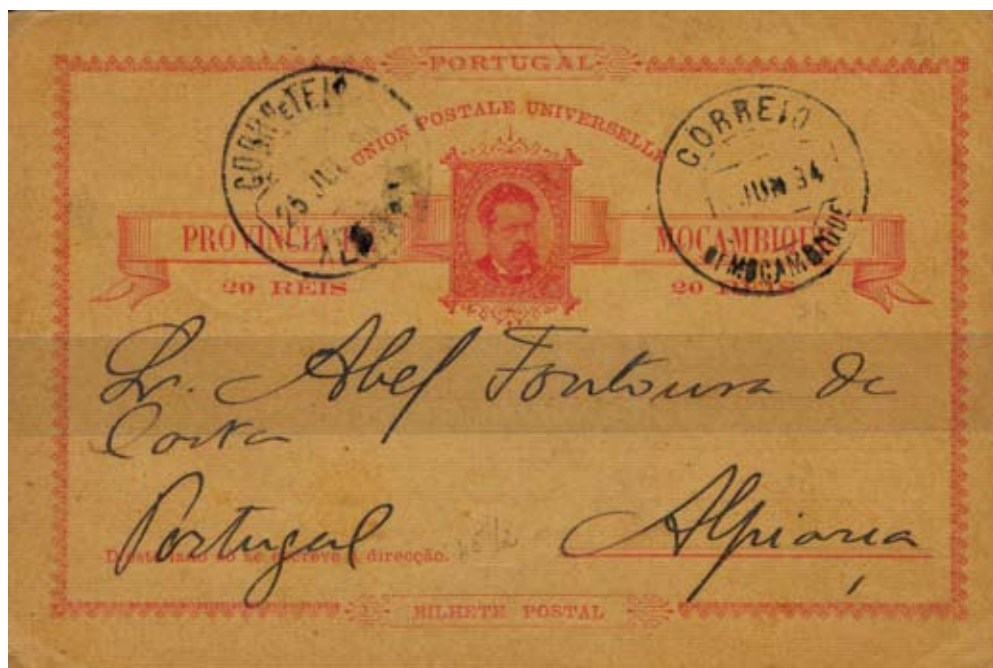 PORTUGAL
UNION POSTALE UNIVERSELLE
CORRº E TELº
25 JUL
CORREIO
JUN 94
DE MOÇAMBIQUE
PROVINCIA MOÇAMBIQUE
20 REIS 20 REIS
Sr. Abel Fontoura de
Costa
Portugal Alpiarça
D'este lado só se escreve a direcção.
BILHETE POSTAL